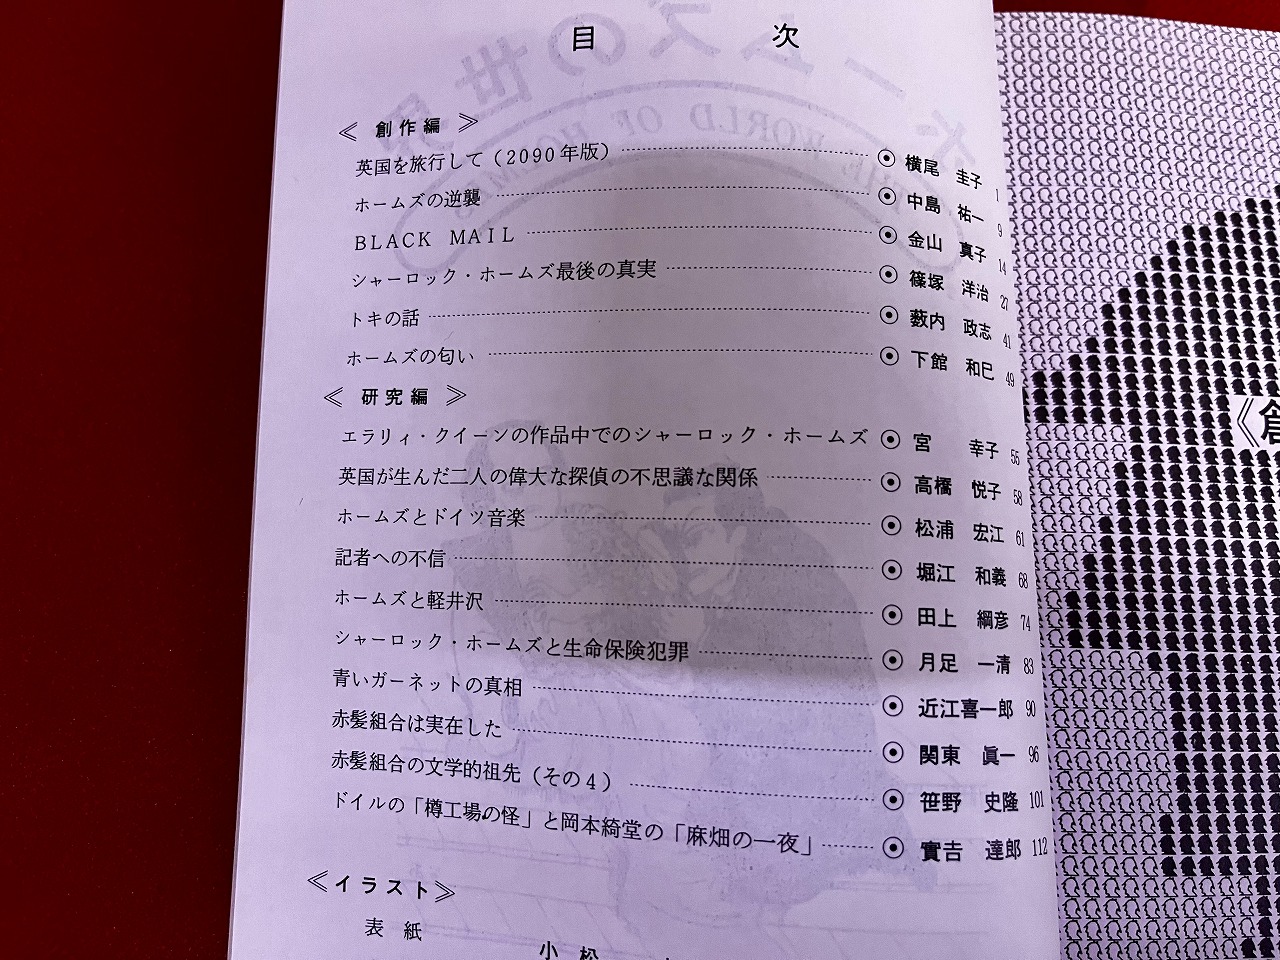 目 次
≪ 創作編 ≫
英国を旅行して（2090年版） ⦿ 横尾 圭子 1
ホームズの逆襲 ⦿ 中島 祐一 9
BLACK MAIL ⦿ 金山 真子 14
シャーロック・ホームズ最後の真実 ⦿ 篠塚 洋治 27
トキの話 ⦿ 薮内 政志 41
ホームズの匂い ⦿ 下館 和巳 49
≪ 研究編 ≫
エラリィ・クイーンの作品中でのシャーロック・ホームズ ⦿ 宮 幸子 55
英国が生んだ二人の偉大な探偵の不思議な関係 ⦿ 高橋 悦子 58
ホームズとドイツ音楽 ⦿ 松浦 宏江 61
記者への不信 ⦿ 堀江 和義 68
ホームズと軽井沢 ⦿ 田上 綱彦 74
シャーロック・ホームズと生命保険犯罪 ⦿ 月足 一清 83
青いガーネットの真相 ⦿ 近江喜一郎 90
赤髪組合は実在した ⦿ 関東 眞一 96
赤髪組合の文学的祖先（その4） ⦿ 笹野 史隆 101
ドイルの「樽工場の怪」と岡本綺堂の「麻畑の一夜」 ⦿ 實吉 達郎 112
≪イラスト≫
表 紙
小 松
《創
ホームズの世界
THE WORLD OF HOLMES